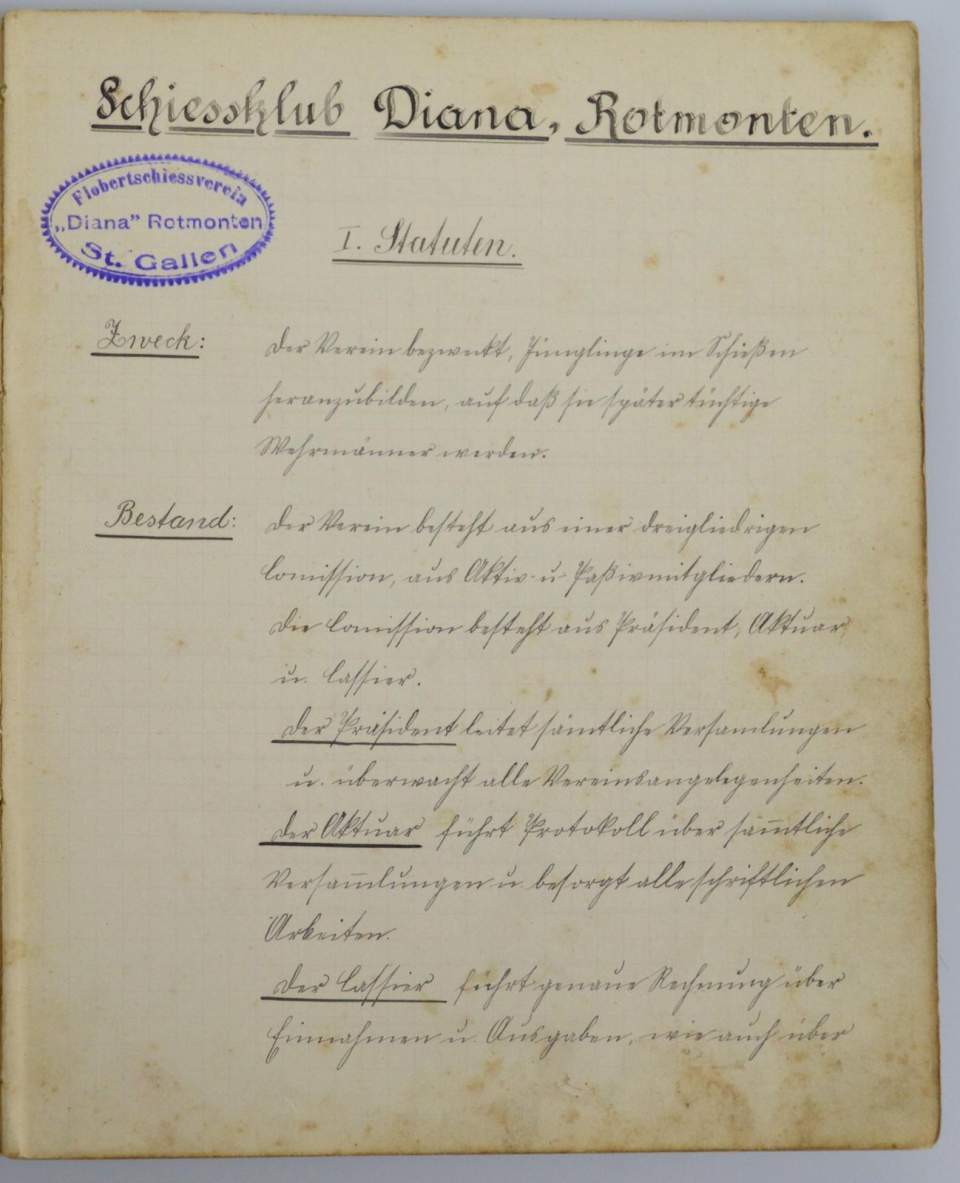 Schiessklub Diana, Rotmonten.
Flobertschiessverein
„Diana” Rotmonten
St. Gallen
I. Statuten.
Zweck:
Der Verein bezweckt, Jünglinge im Schießen
heranzubilden, auf daß sie später tüchtige
Wehrmänner werden.
Bestand:
Der Verein besteht aus einer dreigliedrigen
Comission, aus Aktiv- u. Paßivmitgliedern.
Die Comission besteht aus Präsident, Aktuar
u. Cassier.
Der Präsident leitet sämtliche Versamlungen
u. überwacht alle Vereinsangelegenheiten.
Der Aktuar führt Protokoll über sam̄tliche
Versam̄lungen u. besorgt alle schriftlichen
Arbeiten.
Der Cassier führt genaue Rechnung über
Einnahmen u. Ausgaben, wie auch über